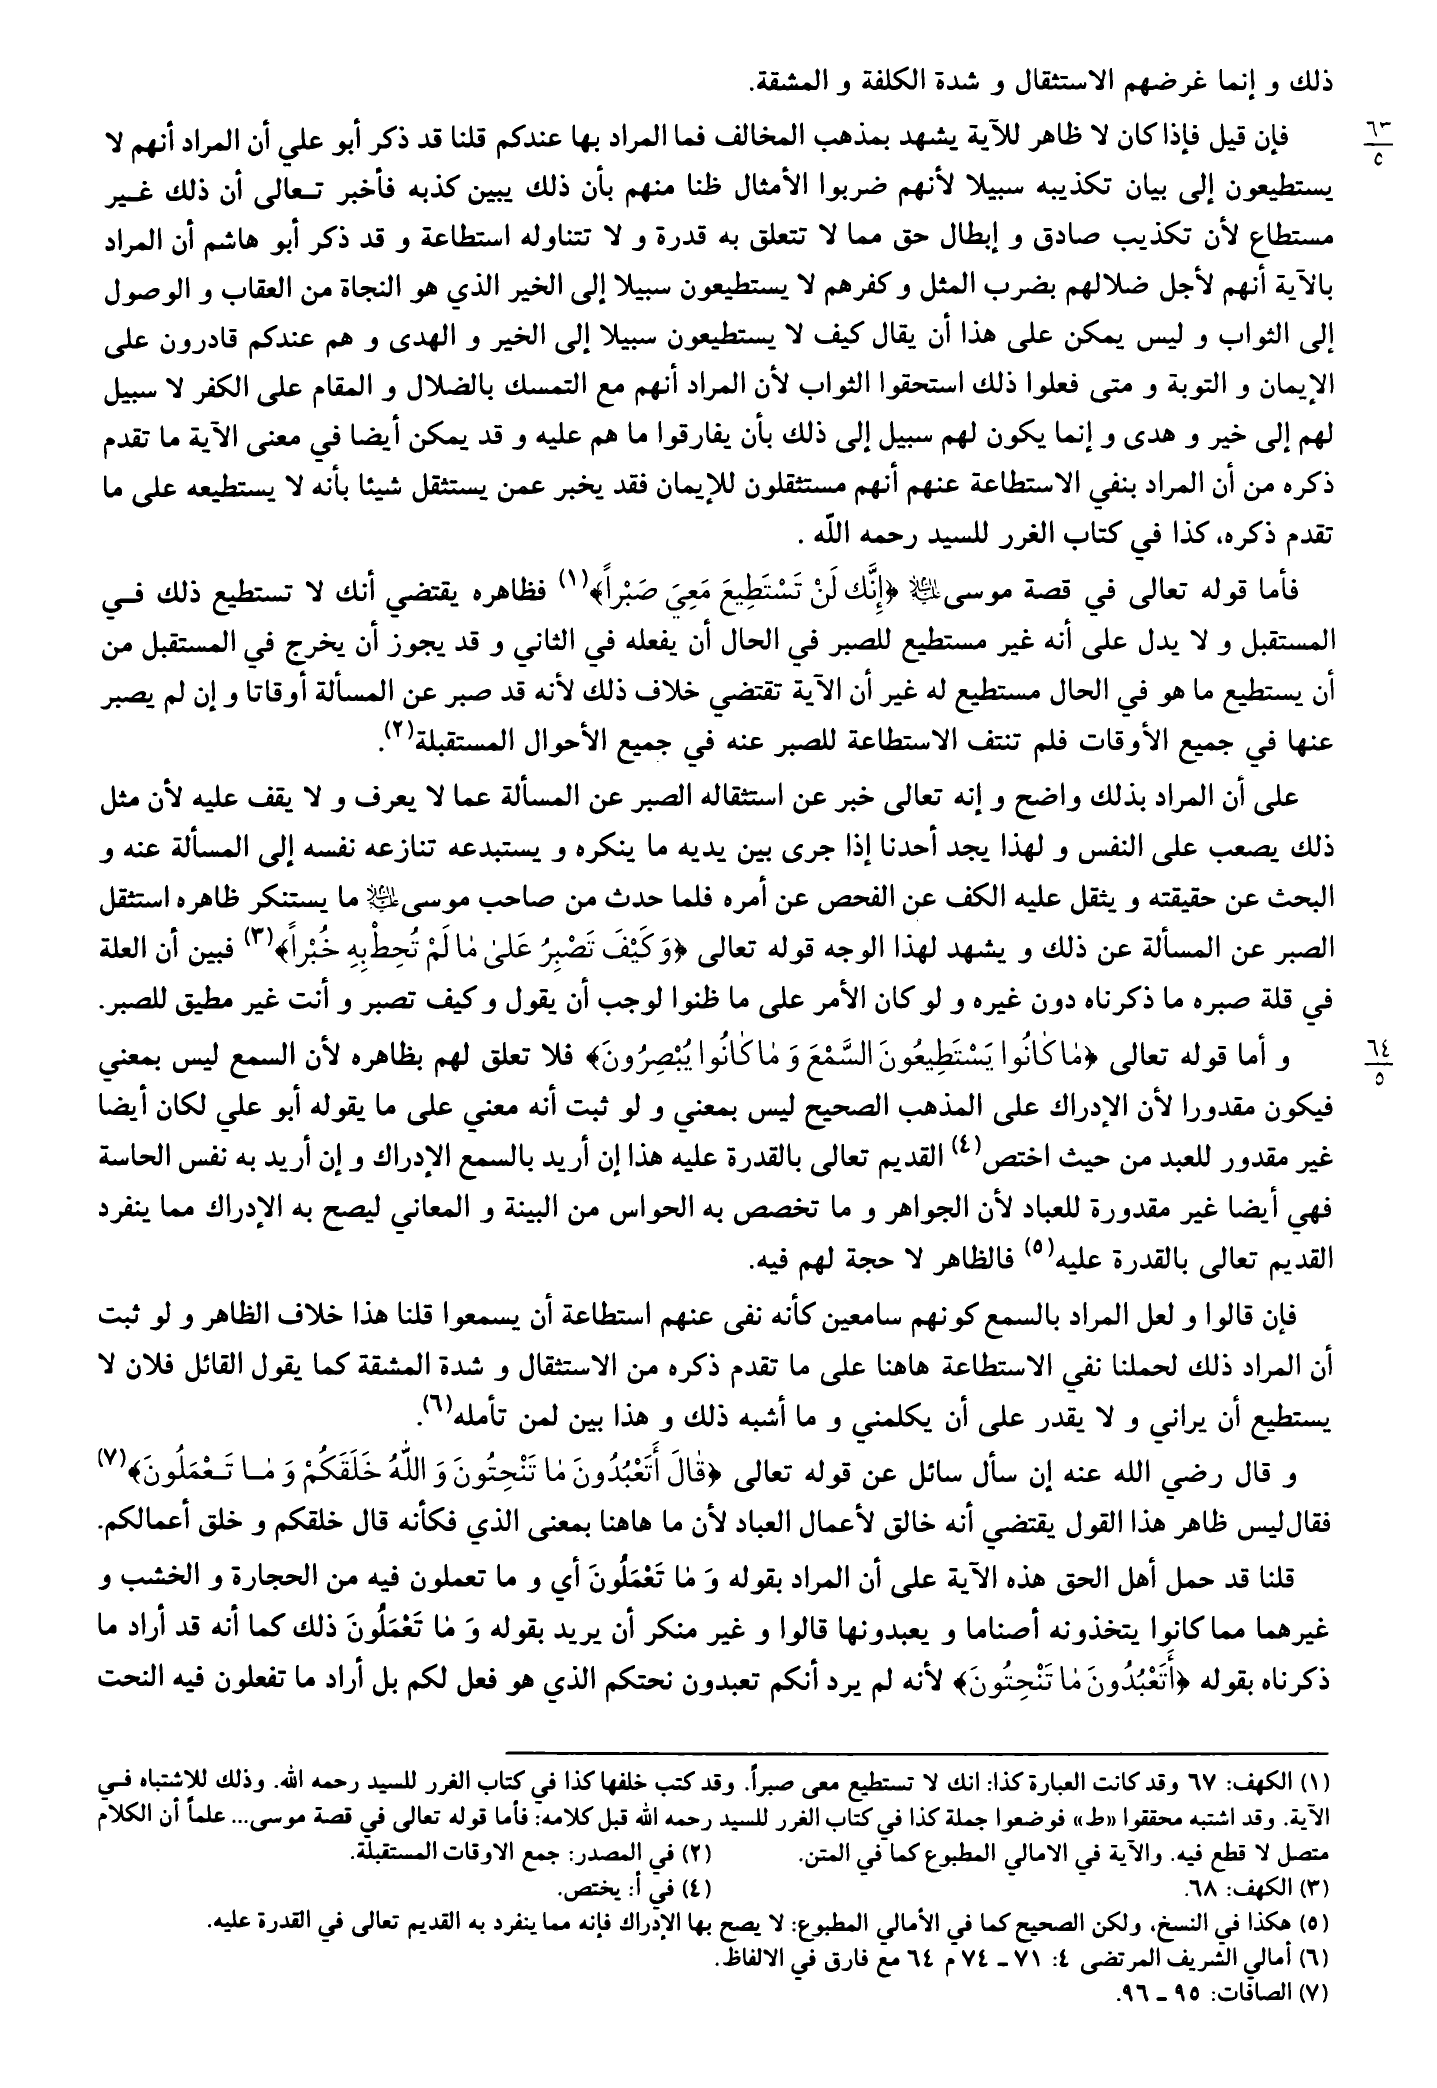 ذلك و إنما غرضهم الاستثقال و شدة الكلفة و المشقة.
٦٣
٥
فإن قيل فإذا كان لا ظاهر للآية يشهد بمذهب المخالف فما المراد بها عندكم قلنا قد ذكر أبو علي أن المراد أنهم لا
يستطيعون إلى بيان تكذيبه سبيلا لأنهم ضربوا الأمثال ظنا منهم بأن ذلك يبين كذبه فأخبر تعالى أن ذلك غير
مستطاع لأن تكذيب صادق و إبطال حق مما لا تتعلق به قدرة و لا تتناوله استطاعة و قد ذكر أبو هاشم أن المراد
بالآية أنهم لأجل ضلالهم بضرب المثل و كفرهم لا يستطيعون سبيلا إلى الخير الذي هو النجاة من العقاب و الوصول
إلى الثواب و ليس يمكن على هذا أن يقال كيف لا يستطيعون سبيلا إلى الخير و الهدى و هم عندكم قادرون على
الإيمان و التوبة و متى فعلوا ذلك استحقوا الثواب لأن المراد أنهم مع التمسك بالضلال و المقام على الكفر لا سبيل
لهم إلى خير و هدى و إنما يكون لهم سبيل إلى ذلك بأن يفارقوا ما هم عليه و قد يمكن أيضا في معنى الآية ما تقدم
ذكره من أن المراد بنفي الاستطاعة عنهم أنهم مستثقلون للإيمان فقد يخبر عمن يستثقل شيئا بأنه لا يستطيعه على ما
تقدم ذكره، كذا في كتاب الغرر للسيد رحمه اللّه .
فأما قوله تعالى في قصة موسى ﷺ ﴿إِنَّك لَنْ تَسْتَطِيعَ مَعِيَ صَبْراً﴾(١) فظاهره يقتضي أنك لا تستطيع ذلك في
المستقبل و لا يدل على أنه غير مستطيع للصبر في الحال أن يفعله في الثاني و قد يجوز أن يخرج في المستقبل من
أن يستطيع ما هو في الحال مستطيع له غير أن الآية تقتضي خلاف ذلك لأنه قد صبر عن المسألة أوقاتا و إن لم يصبر
عنها في جميع الأوقات فلم تنتف الاستطاعة للصبر عنه في جميع الأحوال المستقبلة(٢).
على أن المراد بذلك واضح و إنه تعالى خبر عن استثقاله الصبر عن المسألة عما لا يعرف و لا يقف عليه لأن مثل
ذلك يصعب على النفس و لهذا يجد أحدنا إذا جرى بين يديه ما ينكره و يستبدعه تنازعه نفسه إلى المسألة عنه و
البحث عن حقيقته و يثقل عليه الكف عن الفحص عن أمره فلما حدث من صاحب موسى ﷺ ما يستنكر ظاهره استثقل
الصبر عن المسألة عن ذلك و يشهد لهذا الوجه قوله تعالى ﴿وَ كَيْفَ تَصْبِرُ عَلىٰ مٰا لَمْ تُحِطْ بِهِ خُبْراً﴾(٣) فبين أن العلة
في قلة صبره ما ذكرناه دون غيره و لو كان الأمر على ما ظنوا لوجب أن يقول و كيف تصبر و أنت غير مطيق للصبر.
٦٤
٥
و أما قوله تعالى ﴿مٰا كٰانُوا يَسْتَطِيعُونَ السَّمْعَ وَ مٰا كٰانُوا يُبْصِرُونَ﴾ فلا تعلق لهم بظاهره لأن السمع ليس بمعني
فيكون مقدورا لأن الإدراك على المذهب الصحيح ليس بمعني و لو ثبت أنه معني على ما يقوله أبو علي لكان أيضا
غير مقدور للعبد من حيث اختص(٤) القديم تعالى بالقدرة عليه هذا إن أريد بالسمع الإدراك و إن أريد به نفس الحاسة
فهي أيضا غير مقدورة للعباد لأن الجواهر و ما تخصص به الحواس من البينة و المعاني ليصح به الإدراك مما ينفرد
القديم تعالى بالقدرة عليه(٥) فالظاهر لا حجة لهم فيه.
فإن قالوا و لعل المراد بالسمع كونهم سامعين كأنه نفى عنهم استطاعة أن يسمعوا قلنا هذا خلاف الظاهر و لو ثبت
أن المراد ذلك لحملنا نفي الاستطاعة هاهنا على ما تقدم ذكره من الاستثقال و شدة المشقة كما يقول القائل فلان لا
يستطيع أن يراني و لا يقدر على أن يكلمني و ما أشبه ذلك و هذا بين لمن تأمله(٦).
و قال رضي الله عنه إن سأل سائل عن قوله تعالى ﴿قٰالَ أَتَعْبُدُونَ مٰا تَنْحِتُونَ وَ اللّٰهُ خَلَقَكُمْ وَ مٰا تَعْمَلُونَ﴾(٧)
فقال ليس ظاهر هذا القول يقتضي أنه خالق لأعمال العباد لأن ما هاهنا بمعنى الذي فكأنه قال خلقكم و خلق أعمالكم.
قلنا قد حمل أهل الحق هذه الآية على أن المراد بقوله وَ مٰا تَعْمَلُونَ أي و ما تعملون فيه من الحجارة و الخشب و
غيرهما مما كانوا يتخذونه أصناما و يعبدونها قالوا و غير منكر أن يريد بقوله وَ مٰا تَعْمَلُونَ ذلك كما أنه قد أراد ما
ذكرناه بقوله ﴿أَتَعْبُدُونَ مٰا تَنْحِتُونَ﴾ لأنه لم يرد أنكم تعبدون نحتكم الذي هو فعل لكم بل أراد ما تفعلون فيه النحت
(١) الكهف: ٦٧ وقد كانت العبارة كذا: انك لا تستطيع معى صبراً. وقد كتب خلفها كذا في كتاب الغرر للسيد رحمه الله. وذلك للاشتباه في
الآية. وقد اشتبه محققوا «ط» فوضعوا جملة كذا في كتاب الغرر للسيد رحمه الله قبل كلامه: فأما قوله تعالى في قصة موسى... علماً أن الكلام
متصل لا قطع فيه. والآية في الامالي المطبوع كما في المتن.
(٢) في المصدر: جمع الاوقات المستقبلة.
(٣) الكهف: ٦٨.
(٤) في أ: يختص.
(٥) هكذا في النسخ، ولكن الصحيح كما في الأمالي المطبوع: لا يصح بها الإدراك فإنه مما ينفرد به القديم تعالى في القدرة عليه.
(٦) أمالي الشريف المرتضى ٤: ٧١ ـ ٧٤ م ٦٤ مع فارق في الالفاظ.
(٧) الصافات: ٩٥ ـ ٩٦.